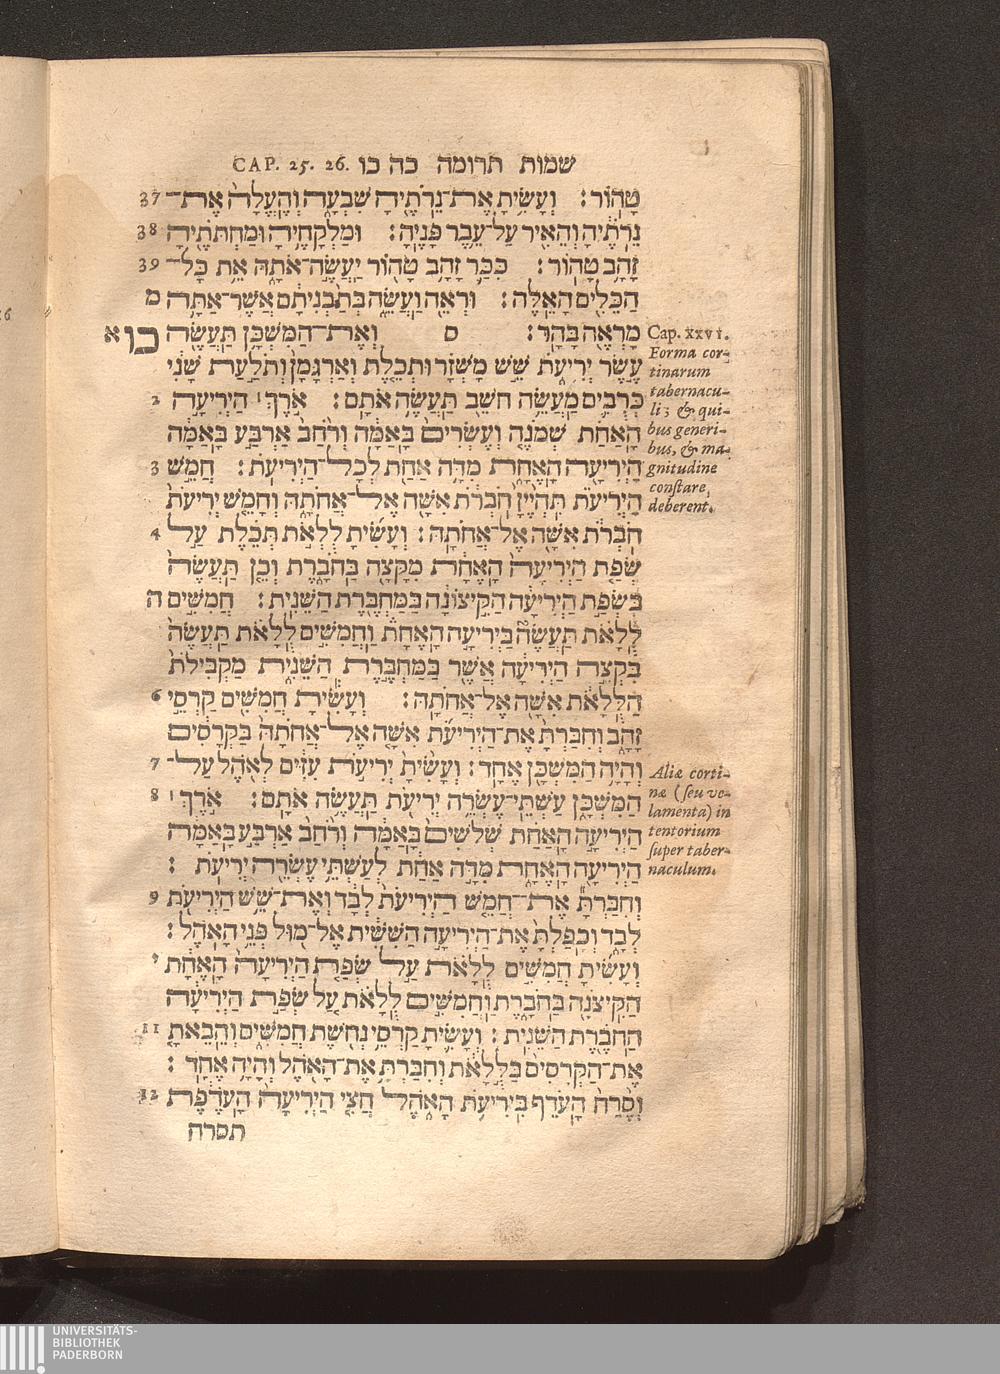 שמות תרומה כה כו CAP. 25. 26.
טָהֽוֹר׃ וְעָשִׂ֥יתָ אֶת־נֵרֹתֶ֖יהָ שִׁבְעָ֑ה וְהֶֽעֱלָה֙ אֶת־ 37
נֵ֣רֹתֶ֔יהָ וְהֵאִ֖יר עַל־עֵ֥בֶר פָּנֶֽיהָ׃ וּמַלְקָחֶ֥יהָ וּמַחְתֹּתֶ֖יהָ 38
זָהָ֥ב טָהֽוֹר׃ כִּכַּ֛ר זָהָ֥ב טָה֖וֹר יַעֲשֶׂ֣ה אֹתָ֑הּ אֵ֥ת כָּל־ 39
הַכֵּלִ֖ים הָאֵֽלֶּה׃ וּרְאֵ֖ה וַעֲשֵׂ֑ה בְּתַ֨בְנִיתָ֔ם אֲשֶׁר־אַתָּ֥ה מ
מָרְאֶ֖ה בָּהָֽר׃ ס וְאֶת־הַמִּשְׁכָּ֥ן תַּעֲשֶׂ֖ה כו א
עֶ֣שֶׂר יְרִיעֹ֑ת שֵׁ֣שׁ מָשְׁזָ֗ר וּתְכֵ֤לֶת וְאַרְגָּמָן֙ וְתֹלַ֣עַת שָׁנִ֔י
כְּרֻבִ֛ים מַעֲשֵׂ֥ה חֹשֵׁ֖ב תַּעֲשֶׂ֥ה אֹתָֽם׃ אֹ֣רֶךְ ׀ הַיְרִיעָ֣ה 2
הָֽאַחַ֗ת שְׁמֹנֶ֤ה וְעֶשְׂרִים֙ בָּֽאַמָּ֔ה וְרֹ֙חַב֙ אַרְבַּ֣ע בָּאַמָּ֔ה
הַיְרִיעָ֖ה הָאֶחָ֑ת מִדָּ֥ה אַחַ֖ת לְכָל־הַיְרִיעֹֽת׃ חֲמֵ֣שׁ 3
הַיְרִיעֹ֗ת תִּֽהְיֶ֙יןָ֙ חֹֽבְרֹ֔ת אִשָּׁ֖ה אֶל־אֲחֹתָ֑הּ וְחָמֵ֤שׁ יְרִיעֹת֙
חֹֽבְרֹ֔ת אִשָּׁ֖ה אֶל־אֲחֹתָֽהּ׃ וְעָשִׂ֜יתָ לֻֽלְאֹ֣ת תְּכֵ֗לֶת עַ֣ל 4
שְׂפַ֤ת הַיְרִיעָה֙ הָאֶחָ֔ת מִקָּצָ֖ה בַּחֹבָ֑רֶת וְכֵ֤ן תַּעֲשֶׂה֙
בִּשְׂפַ֣ת הַיְרִיעָ֔ה הַקִּ֣יצוֹנָ֔ה בַּמַּחְבֶּ֖רֶת הַשֵּׁנִֽית׃ חֲמִשִּׁ֣ים ה
לֻֽלָאֹ֗ת תַּעֲשֶׂה֮ בַּיְרִיעָ֣ה הָאֶחָת֒ וַחֲמִשִּׁ֣ים לֻֽלָאֹ֗ת תַּעֲשֶׂה֙
בִּקְצֵ֣ה הַיְרִיעָ֔ה אֲשֶׁ֖ר בַּמַּחְבֶּ֣רֶת הַשֵּׁנִ֑ית מַקְבִּילֹת֙
הַלֻּ֣לָאֹ֔ת אִשָּׁ֖ה אֶל־אֲחֹתָֽהּ׃ וְעָשִׂ֕יתָ חֲמִשִּׁ֖ים קַרְסֵ֣י 6
זָהָ֑ב וְחִבַּרְתָּ֨ אֶת־הַיְרִיעֹ֜ת אִשָּׁ֤ה אֶל־אֲחֹתָהּ֙ בַּקְּרָסִ֔ים
וְהָיָ֥ה הַמִּשְׁכָּ֖ן אֶחָֽד׃ וְעָשִׂ֙יתָ֙ יְרִיעֹ֣ת עִזִּ֔ים לְאֹ֖הֶל עַל־ 7
הַמִּשְׁכָּ֑ן עַשְׁתֵּי־עֶשְׂרֵ֥ה יְרִיעֹ֖ת תַּעֲשֶׂ֥ה אֹתָֽם׃ אֹ֣רֶךְ ׀ 8
הַיְרִיעָ֣ה הָֽאַחַ֗ת שְׁלֹשִׁים֙ בָּֽאַמָּ֔ה וְרֹ֙חַב֙ אַרְבַּ֣ע בָּאַמָּ֔ה
הַיְרִיעָ֖ה הָאֶחָ֑ת מִדָּ֣ה אַחַ֔ת לְעַשְׁתֵּ֥י עֶשְׂרֵ֖ה יְרִיעֹֽת׃
וְחִבַּרְתָּ֞ אֶת־חֲמֵ֤שׁ הַיְרִיעֹת֙ לְבָ֔ד וְאֶת־שֵׁ֥שׁ הַיְרִיעֹ֖ת 9
לְבָ֑ד וְכָפַלְתָּ֙ אֶת־הַיְרִיעָ֣ה הַשִּׁשִּׁ֔ית אֶל־מ֖וּל פְּנֵ֥י הָאֹֽהֶל׃
וְעָשִׂ֜יתָ חֲמִשִּׁ֣ים לֻֽלָאֹ֗ת עַ֣ל שְׂפַ֤ת הַיְרִיעָה֙ הָֽאֶחָ֔ת י
הַקִּיצֹנָ֖ה בַּחֹבָ֑רֶת וַחֲמִשִּׁ֣ים לֻֽלָאֹ֗ת עַ֚ל שְׂפַ֣ת הַיְרִיעָ֔ה
הַחֹבֶ֖רֶת הַשֵּׁנִֽית׃ וְעָשִׂ֛יתָ קַרְסֵ֥י נְחֹ֖שֶׁת חֲמִשִּׁ֑ים וְהֵבֵאתָ֤ 11
אֶת־הַקְּרָסִים֙ בַּלֻּ֣לָאֹ֔ת וְחִבַּרְתָּ֥ אֶת־הָאֹ֖הֶל וְהָיָ֥ה אֶחָֽד׃
וְסֶ֙רַח֙ הָעֹדֵ֔ף בִּירִיעֹ֖ת הָאֹ֑הֶל חֲצִ֤י הַיְרִיעָה֙ הָעֹדֶ֔פֶת 12
תסרח
Cap. xxvi.
Forma cor-
tinarum
tabernacu-
li; & qui-
bus generi-
bus, & ma-
gnitudine
constare,
deberent.
Aliæ corti-
næ (seu ve-
lamenta) in
tentorium
super taber-
naculum.
UNIVERSITÄTS-
BIBLIOTHEK
PADERBORN